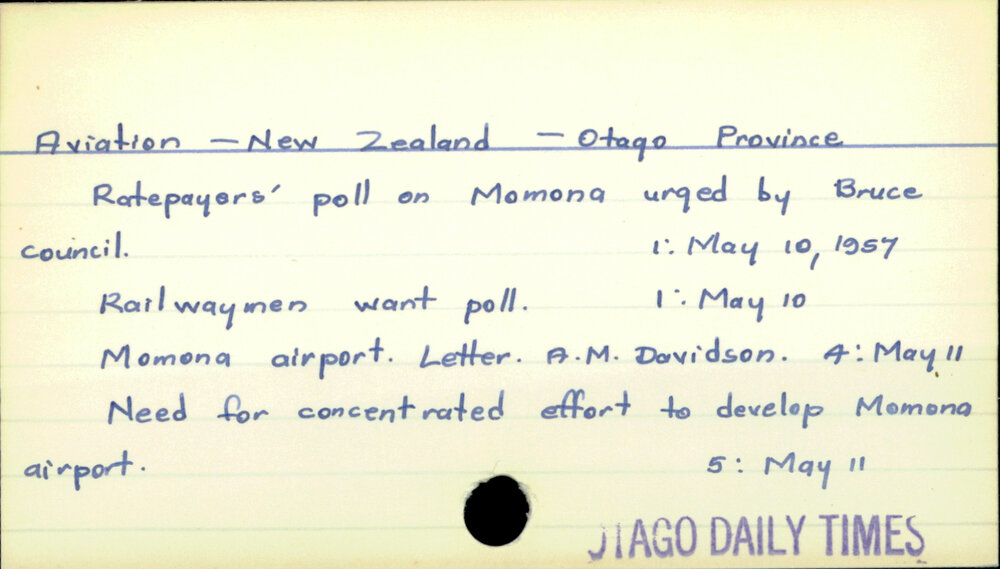 Aviation – New Zealand – Otago Province
Ratepayers' poll on Momona urged by Bruce
council. 1: May 10, 1957
Railwaymen want poll. 1: May 10
Momona airport. Letter. A.M. Davidson. 4: May 11
Need for concentrated effort to develop Momona
airport. 5: May 11
OTAGO DAILY TIMES